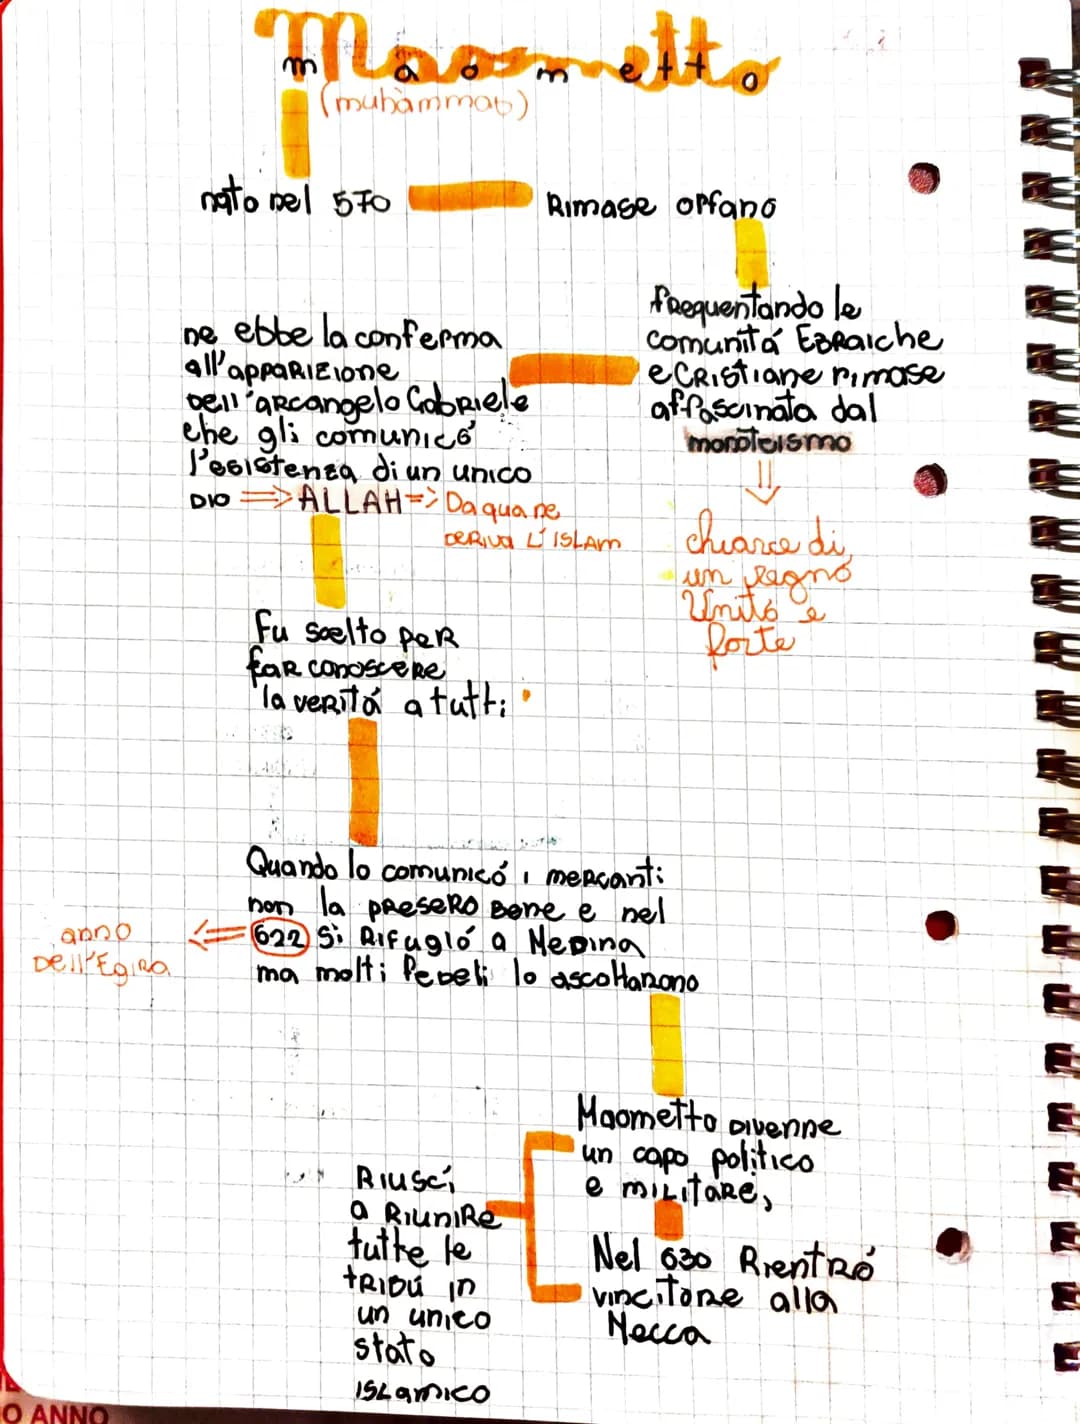 Maometto
(muhàmmad)
nato nel 570
Rimase orfano
frequentando le
comunitá Ebraiche
e Cristiane rimase
affascinata dal
monoteismo
chiave di
un regno
Unito e
forte
ne ebbe la conferma
all'apparizione
dell'arcangelo Gabriele
che gli comunicó
l'esistenza di un unico
DIO => ALLAH => Da qua ne
deriva L'ISLAM
Fu scelto per
far conoscere
la veritá a tutti
Quando lo comunicó i mercanti
non la presero bene e nel
622 si Rifugió a Medina
ma molti fedeli lo ascoltarono
anno
Dell'Egira
Maometto divenne
un capo politico
e militare,
Nel 630 Rientró
vincitore alla
Mecca
Riuscí
a Riunire
tutte le
tribú in
un unico
stato
islamico
O ANNO